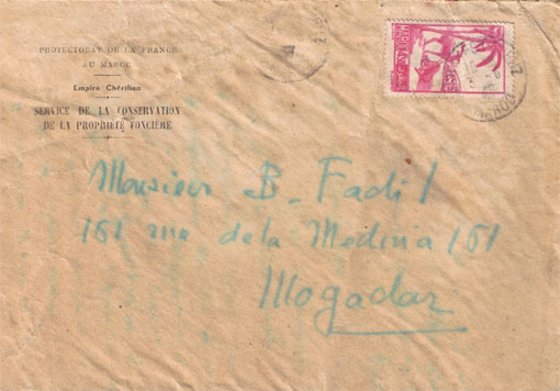 PROTECTORAT DE LA FRANCE
AU MAROC
Empire Chérifien
SERVICE DE LA CONSERVATION
DE LA PROPRIÉTÉ FONCIÈRE
MAROC
MAROC
Monsieur B. Fadil
161 rue de la Medina 161
Mogador